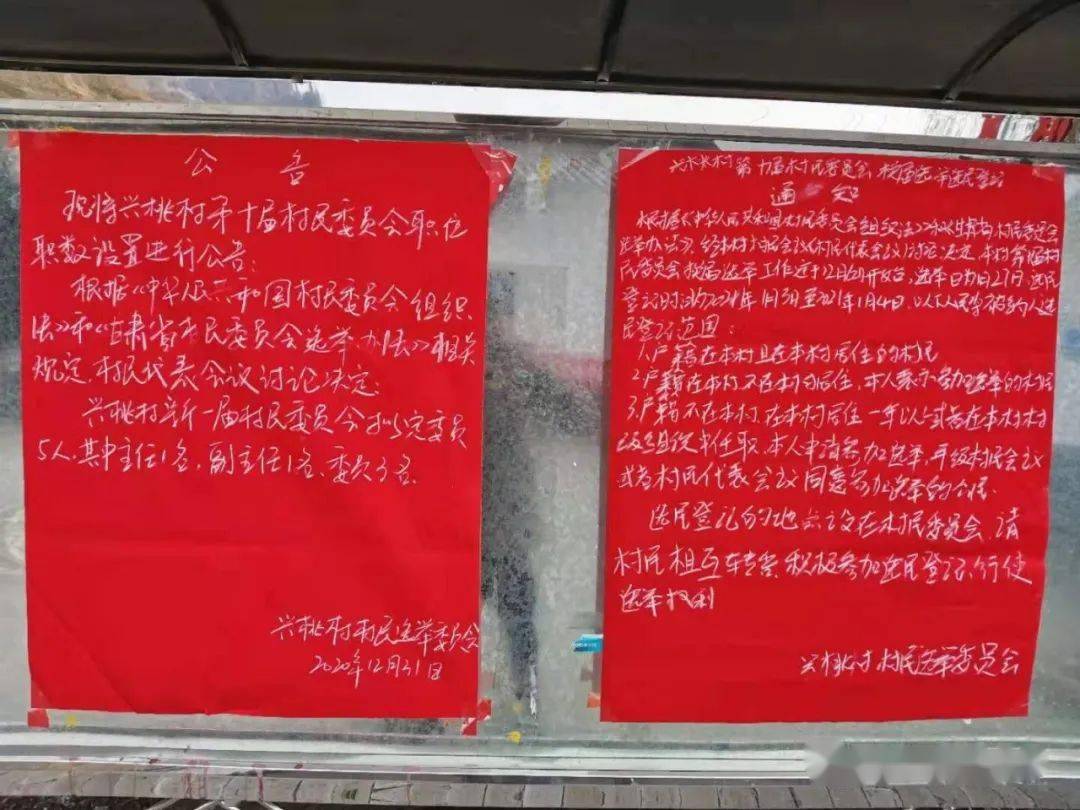 公告
现将兴桃村第十届村民委员会职位
职数设置进行公告:
根据《中华人民共和国村民委员会组织
法》和《甘肃省村民委员会选举办法》相关
规定,村民代表会议讨论决定:
兴桃村新一届村民委员会拟定委员
5人,其中主任1名,副主任1名,委员3名.
兴桃村村民选举委员会
2020年12月31日
兴桃村第十届村民委员会换届选举选民登记
通知
根据《中华人民共和国村民委员会组织法》和《甘肃省村民委员会
选举办法》经本村村民会议(村民代表会议)讨论决定,本村第十届村
民委员会换届选举工作近于12月
选举日为1月27日,选民
登记时间为
年1月3日至2021年1月4日,
民登记范围:
1.户籍在本村且在本村居住的村民
2.户籍在本村,不在本村居住,本人表示参加选举的村民
3.户籍不在本村,在本村居住一年以上或者在本村村
级组织中任职,本人申请参加选举,并经村民会议
或者村民代表会议同意参加选举的公民.
选民登记的地点设在村民委员会,请
村民相互转告,积极参加选民登记,行使
选举权利
兴桃村村民选举委员会